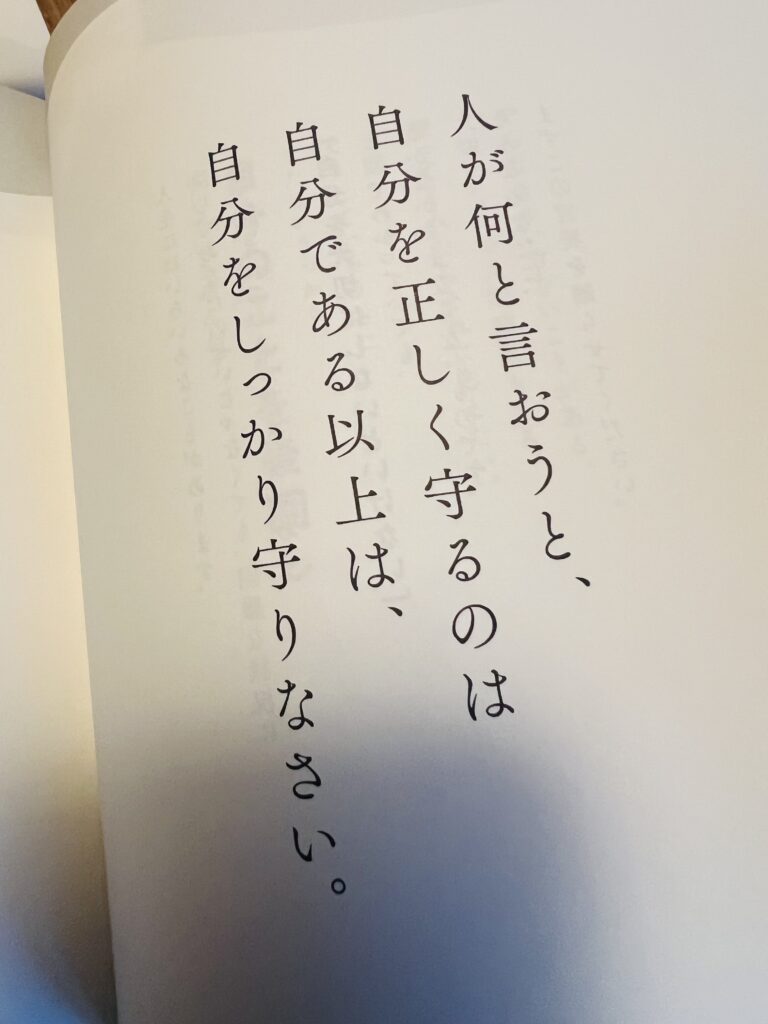 人が何と言おうと、
自分を正しく守るのは
自分である以上は、
自分をしっかり守りなさい。